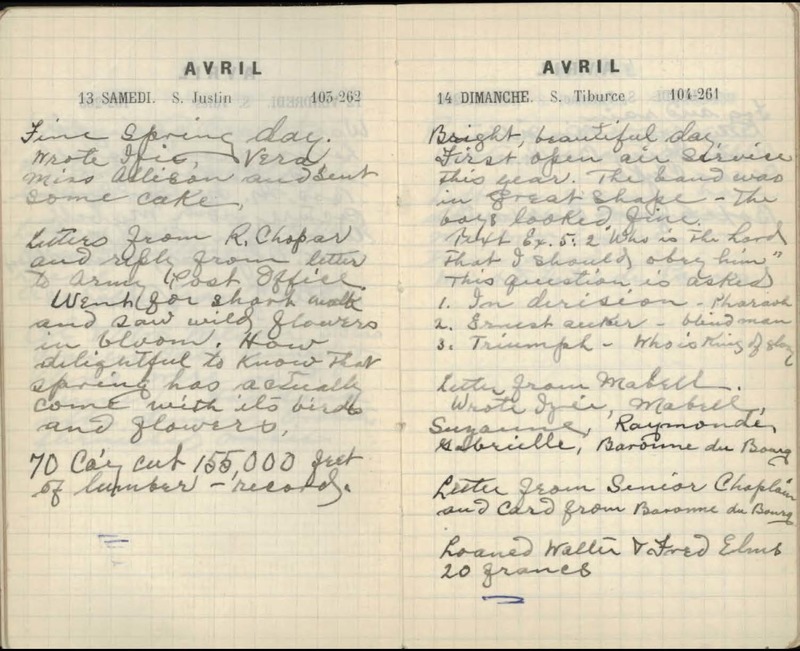 AVRIL
13 SAMEDI. S. Justin 103-262
Fine spring day.
Wrote Ivie, Vera
Miss Allison and sent
some cake.
Letters from R. Chopar
and reply from letter
to Army Post Office.
Went for short walk
and saw wild flowers
in bloom. How
delightful to know that
spring has actually
come with its birds
and flowers.
70 Co'y cut 155,000 feet
of lumber - record.
AVRIL
14 DIMANCHE. S. Tiburce 104-261
Bright, beautiful day.
First open air service
this year. The band was
in great shape - The
boys looked fine.
Text Ex. 5:2 "Who is the Lord
that I should obey him"
This question is asked
1. In derision - Pharaoh
2. Ernest seeker - blind man
3. Triumph - Who is King of glory
Letter from Mabell.
Wrote Ivie, Mabell,
Suzanne, Raymonde,
Gabrielle, Baronne du Bourg
Letter from Senior Chaplain
and card from Baronne du Bourg
Loaned Walter & Fred Elms
20 francs